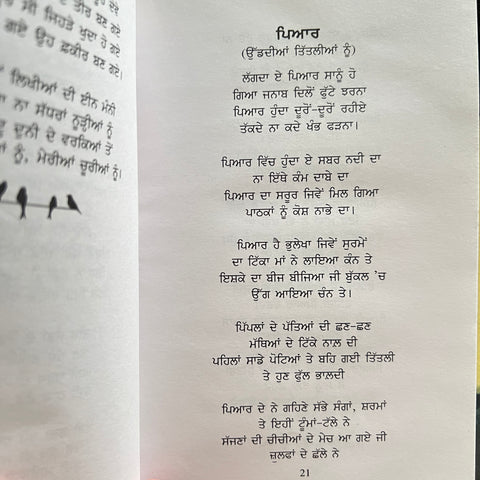 ਤੀਰ ਬਣ ਗਏ
ਸੀ ਜਿਹੜੇ ਖੁਦਾ ਹੋ ਗਏ
ਗਏ ਉਹ ਫ਼ਕੀਰ ਬਣ ਗਏ।
ਲਿਖੀਆਂ ਦੀ ਈਨ ਮੰਨੀ
ਨਾ ਸੱਧਰਾਂ ਨੂੜੀਆਂ ਨੂੰ
ਦੁਨੀ ਦੇ ਵਰਕਿਆਂ ਤੋਂ
ਨੂੰ, ਮੇਰੀਆਂ ਚੂਰੀਆਂ ਨੂੰ।
ਪਿਆਰ
(ਉੱਡਦੀਆਂ ਤਿੱਤਲੀਆਂ ਨੂੰ)
ਲੱਗਦਾ ਏ ਪਿਆਰ ਸਾਨੂੰ ਹੋ
ਗਿਆ ਜਨਾਬ ਦਿਲੋਂ ਫੁੱਟੇ ਝਰਨਾ
ਪਿਆਰ ਹੁੰਦਾ ਦੂਰੋਂ-ਦੂਰੋਂ ਰਹੀਏ
ਤੱਕਦੇ ਨਾ ਕਦੇ ਖੰਭ ਫੜਨਾ।
ਪਿਆਰ ਵਿੱਚ ਹੁੰਦਾ ਏ ਸਬਰ ਨਦੀ ਦਾ
ਨਾ ਇੱਥੇ ਕੰਮ ਦਾਬੇ ਦਾ
ਪਿਆਰ ਦਾ ਸਰੂਰ ਜਿਵੇਂ ਮਿਲ ਗਿਆ
ਪਾਠਕਾਂ ਨੂੰ ਕੋਸ਼ ਨਾਭੇ ਦਾ।
ਪਿਆਰ ਹੈ ਭੁਲੇਖਾ ਜਿਵੇਂ ਸੁਰਮੇਂ
ਦਾ ਟਿੱਕਾ ਮਾਂ ਨੇ ਲਾਇਆ ਕੰਨ ਤੇ
ਇਸ਼ਕੇ ਦਾ ਬੀਜ ਬੀਜਿਆ ਜੀ ਬੁੱਕਲ 'ਚ
ਉੱਗ ਆਇਆ ਚੰਨ ਤੇ।
ਪਿੱਪਲਾਂ ਦੇ ਪੱਤਿਆਂ ਦੀ ਛਣ-ਛਣ
ਮੱਥਿਆਂ ਦੇ ਟਿੱਕੇ ਨਾਲ਼ ਦੀ
ਪਹਿਲਾਂ ਸਾਡੇ ਪੋਟਿਆਂ ਤੇ ਬਹਿ ਗਈ ਤਿੱਤਲੀ
ਤੇ ਹੁਣ ਫੁੱਲ ਭਾਲ਼ਦੀ
ਪਿਆਰ ਦੇ ਨੇ ਗਹਿਣੇ ਸੱਭੇ ਸੰਗਾਂ, ਸ਼ਰਮਾਂ
ਤੇ ਇਹੀਂ ਟੂੰਮਾਂ-ਟੱਲੇ ਨੇ
ਸੱਜਣਾਂ ਦੀ ਚੀਚੀਆਂ ਦੇ ਮੇਚ ਆ ਗਏ ਜੀ
ਜ਼ੁਲਫਾਂ ਦੇ ਛੱਲੇ ਨੇ
21